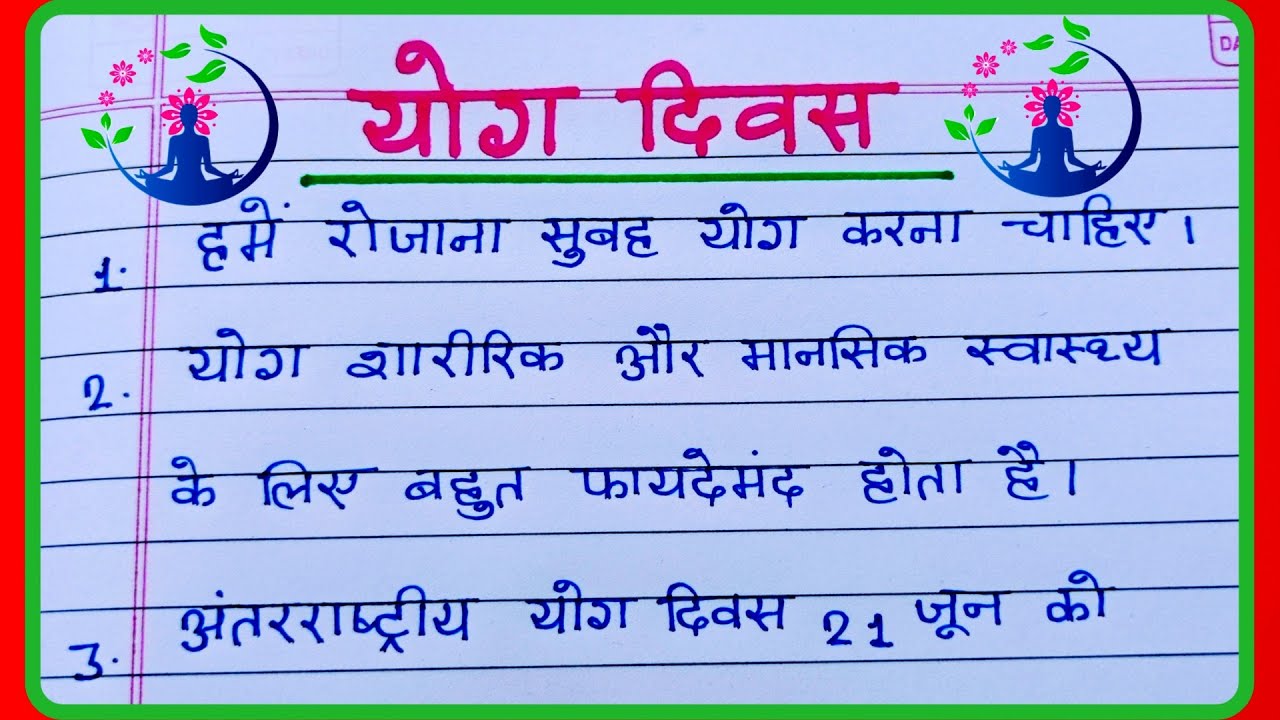 योग दिवस
1. हमें रोजाना सुबह योग करना चाहिए।
2. योग शारीरिक और मानसिक स्वास्थ्य
के लिए बहुत फायदेमंद होता है।
3. अंतरराष्ट्रीय योग दिवस 21 जून को